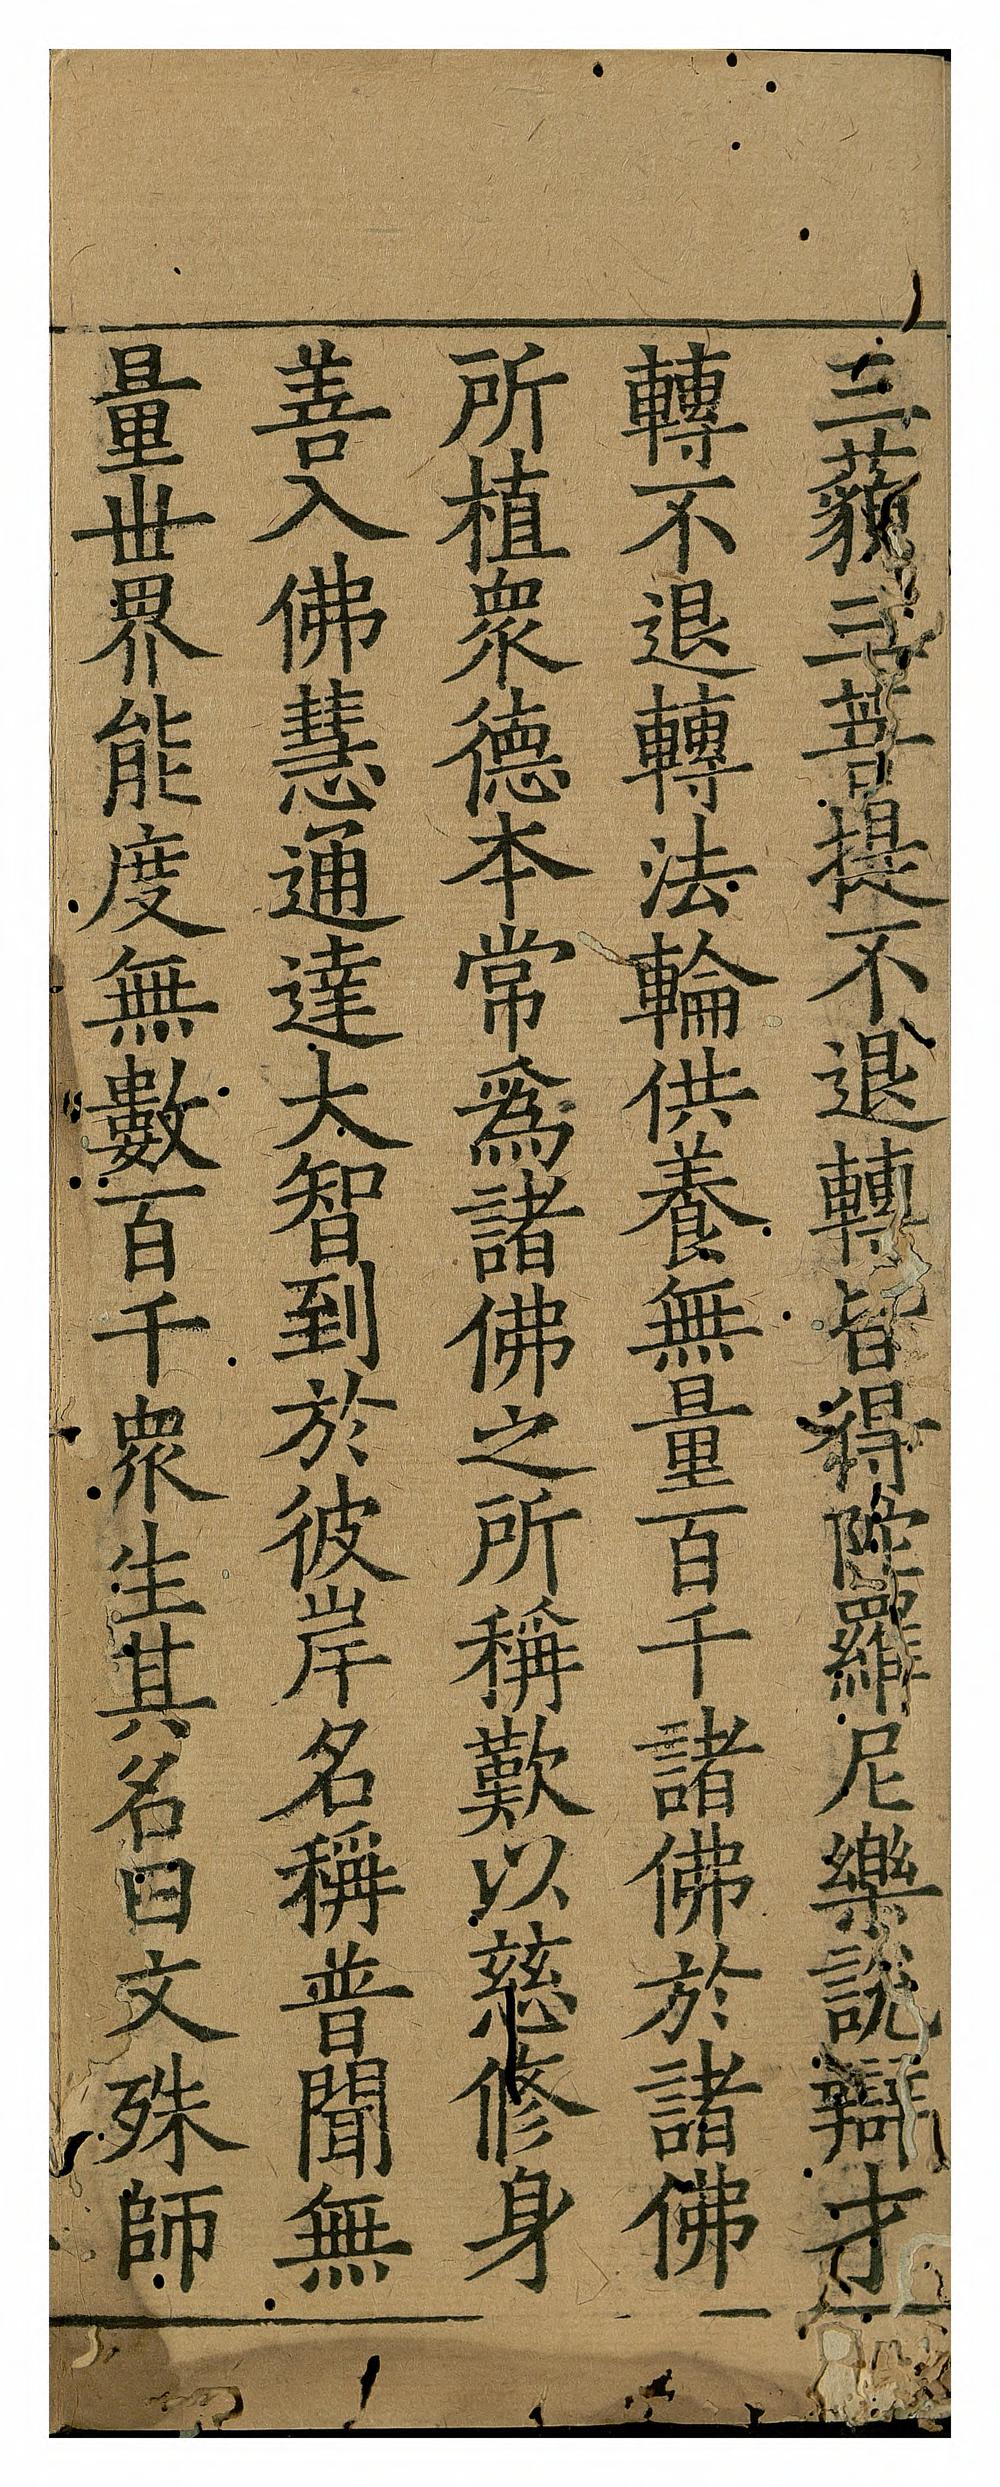 三藐三菩提不退轉皆得陀羅尼樂說辯才
轉不退轉法輪供養無量百千諸佛於諸佛
所植衆德本常爲諸佛之所稱歎以慈修身
善入佛慧通達大智到於彼岸名稱普聞無
量世界能度無數百千衆生其名曰文殊師